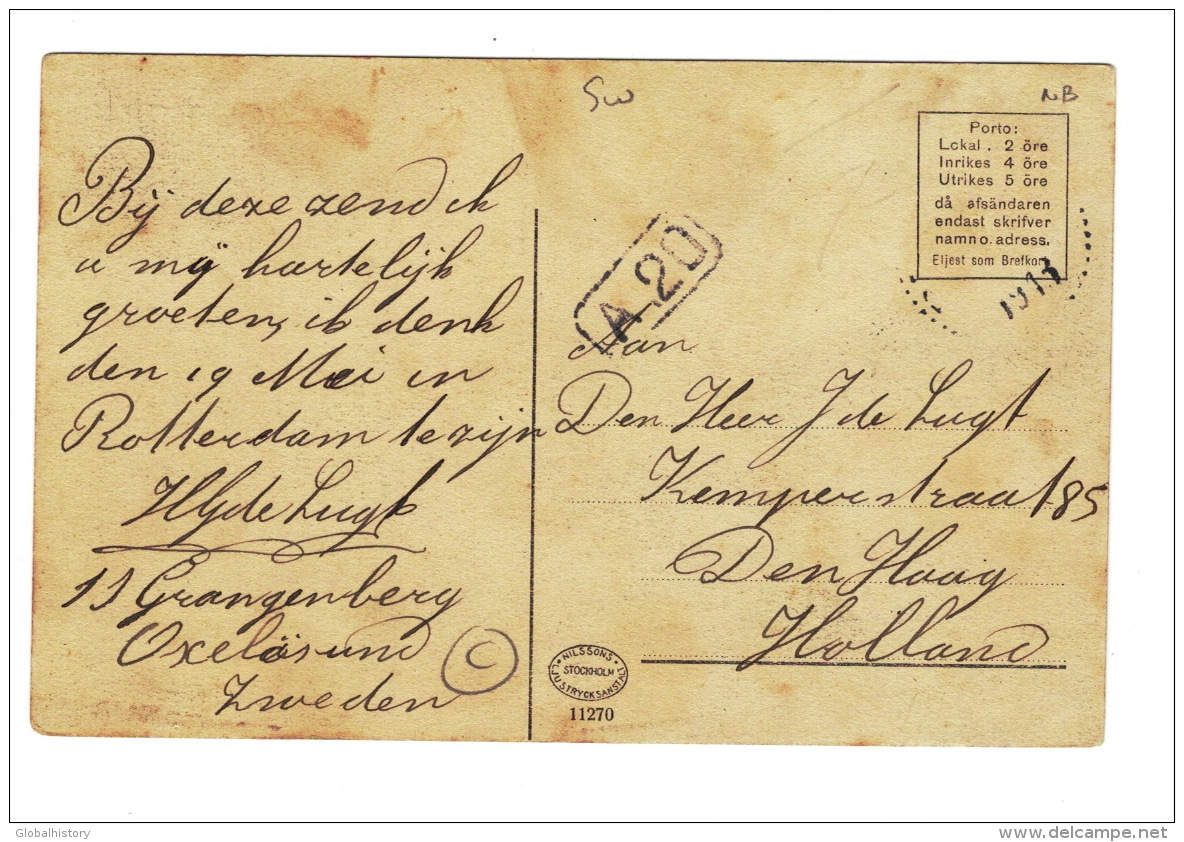 Sw
NB
Bij deze zend ik
u mij hartelijk
groeten, ik denk
den 19 Mei in
Rotterdam te zijn
HJ de Lugt
SS Grangenberg
Oxelösund
Zweden
C
Porto:
Lckal . 2 öre
Inrikes 4 öre
Utrikes 5 öre
då afsändaren
endast skrifver
namn o. adress.
Eljest som Brefkort
A 20
Aan
Den Heer J de Lugt
Kemperstraat 85
Den Haag
Holland
NILSSONS
STOCKHOLM
LJUSTRYCKSANSTALT
11270
Globalhistory
www.delcampe.net